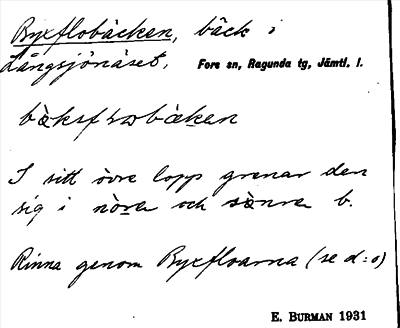 Byxflobäcken, bäck i
Långsjönäset. Fors sn, Ragunda tg, Jämtl. l.
I sitt övre lopp grenar den
sig i nòra och sònra b.
Rinna genom Byxfloarna (se d:o)
E. BURMAN 1931